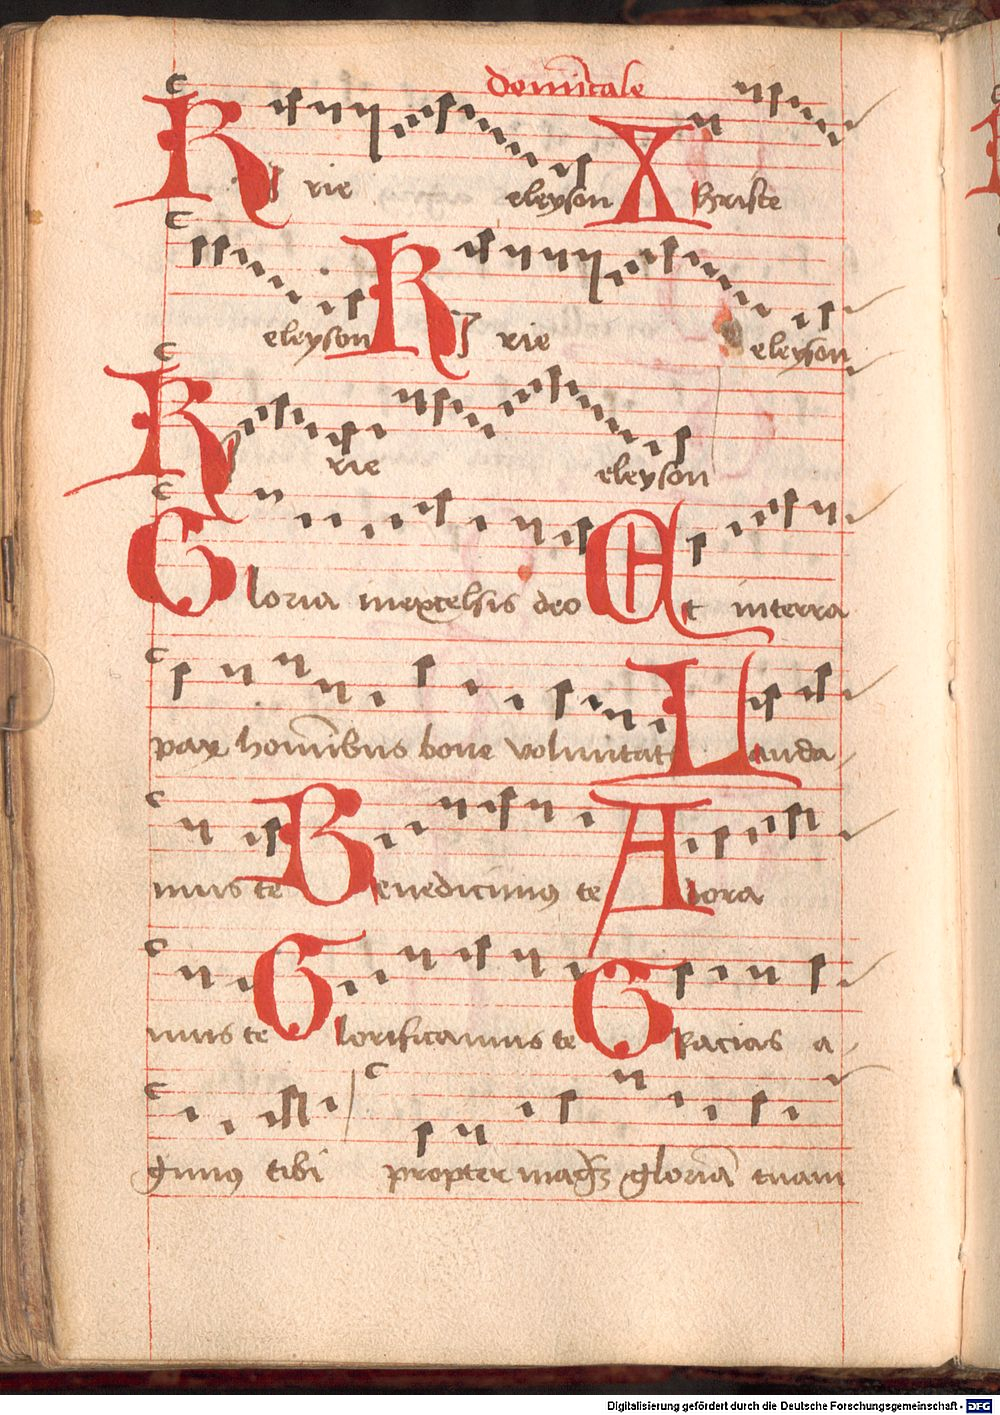 domīcale
Kyrie eleyson Xhriste
eleyson Kyrie eleyson
Kyrie eleyson
Gloria inexcelsis deo Et interra
pax homībus bone voluntat Lauda
mus te Benedicimus te Adora
mus te Glorificamus te Gracias a
gimus tibi propter mag gloriā tuam
Digitalisierung gefördert durch die Deutsche Forschungsgemeinschaft - DFG